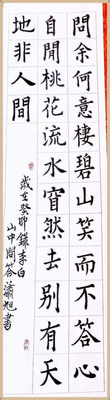 問余何意棲碧山笑而不答心
自閒桃花流水窅然去別有天
地非人間
歲在癸卯錄李白
山中問答 旭書